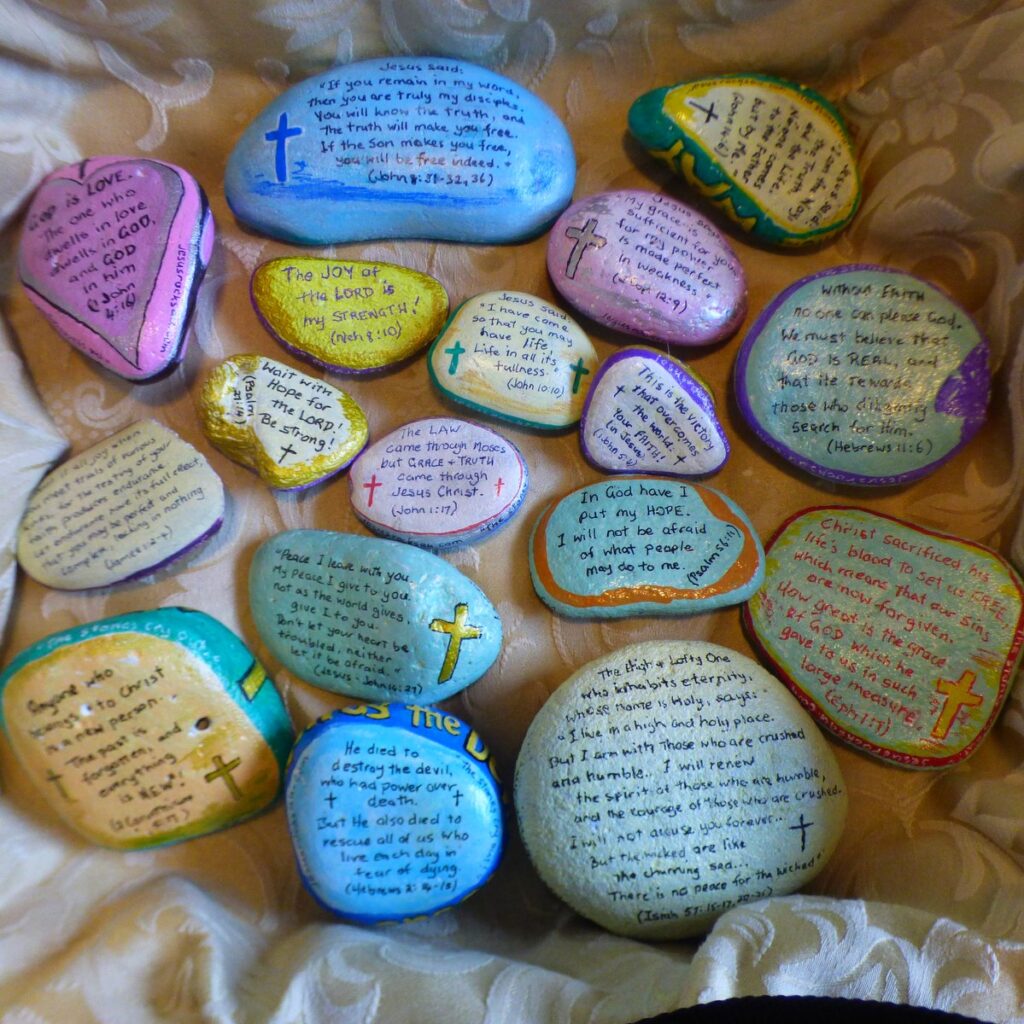 Jesus said:
"If you remain in my word,
then you are truly my disciples.
You will know the truth, and
the truth will make you free.
If the Son makes you free,
you will be free indeed."
(John 8:31-32, 36)
Jesus said:
"I am the Way,
the Truth and
the Life.
No one comes
to the Father
but by Me."
(John 14:6)
GOD is LOVE.
The one who
dwells in love
dwells in GOD,
and GOD
in him
(1 John
4:16)
Jesus said:
"My grace is
sufficient for you,
for my power
is made perfect
in weakness."
(2 Cor 12:9)
The JOY of
the LORD is
my STRENGTH!
(Neh 8:10)
Jesus said:
"I have come
so that you may
have life
Life in all its
fullness."
(John 10:10)
WITHOUT FAITH
no one can please God.
We must believe that
GOD IS REAL, and
that He rewards
those who diligently
search for Him.
(Hebrews 11:6)
Wait with
Hope for
the LORD!
Be strong!
(Psalm
This is the victory
that overcomes
the world:
Your FAITH!
(in Jesus)
(1 John 5:4)
The LAW
came through Moses
but GRACE + TRUTH
came through
Jesus Christ.
(John 1:17)
all joy when
meet trials of various
for the testing of your
faith produces endurance.
let endurance have its full effect,
that you may be perfect and
complete, lacking in nothing
(James 1:2-4)
In God have I
put my HOPE.
I will not be afraid
of what people
may do to me.
(Psalm 56:11)
Christ sacrificed his
life's blood to set us FREE,
which means that our sins
are now forgiven.
How great is the grace
of GOD which he
gave to us in such
large measure.
(Eph 1:7)
"Peace I leave with you.
My peace I give to you.
not as the world gives,
give I to you.
Don't let your heart be
troubled, neither
let it be afraid."
(Jesus - John 14:27)
The stones cry out
Anyone who
belongs to Christ
is a new person.
The past is
forgotten, and
everything
is NEW!
(2 Corinthians
5:17)
the
He died to
destroy the devil,
who had power over
death.
But He also died to
rescue all of us who
live each day in
fear of dying.
(Hebrews 2:14-15)
The High & Lofty One
who inhabits eternity,
whose name is Holy, says:
"I live in a high and holy place.
But I am with those who are crushed
and humble.. I will renew
the spirit of those who are humble,
and the courage of those who are crushed.
I will not accuse you forever...
But the wicked are like
the churning sea...
There is no peace for the wicked"
(Isaiah 57:15-17, 20-21)